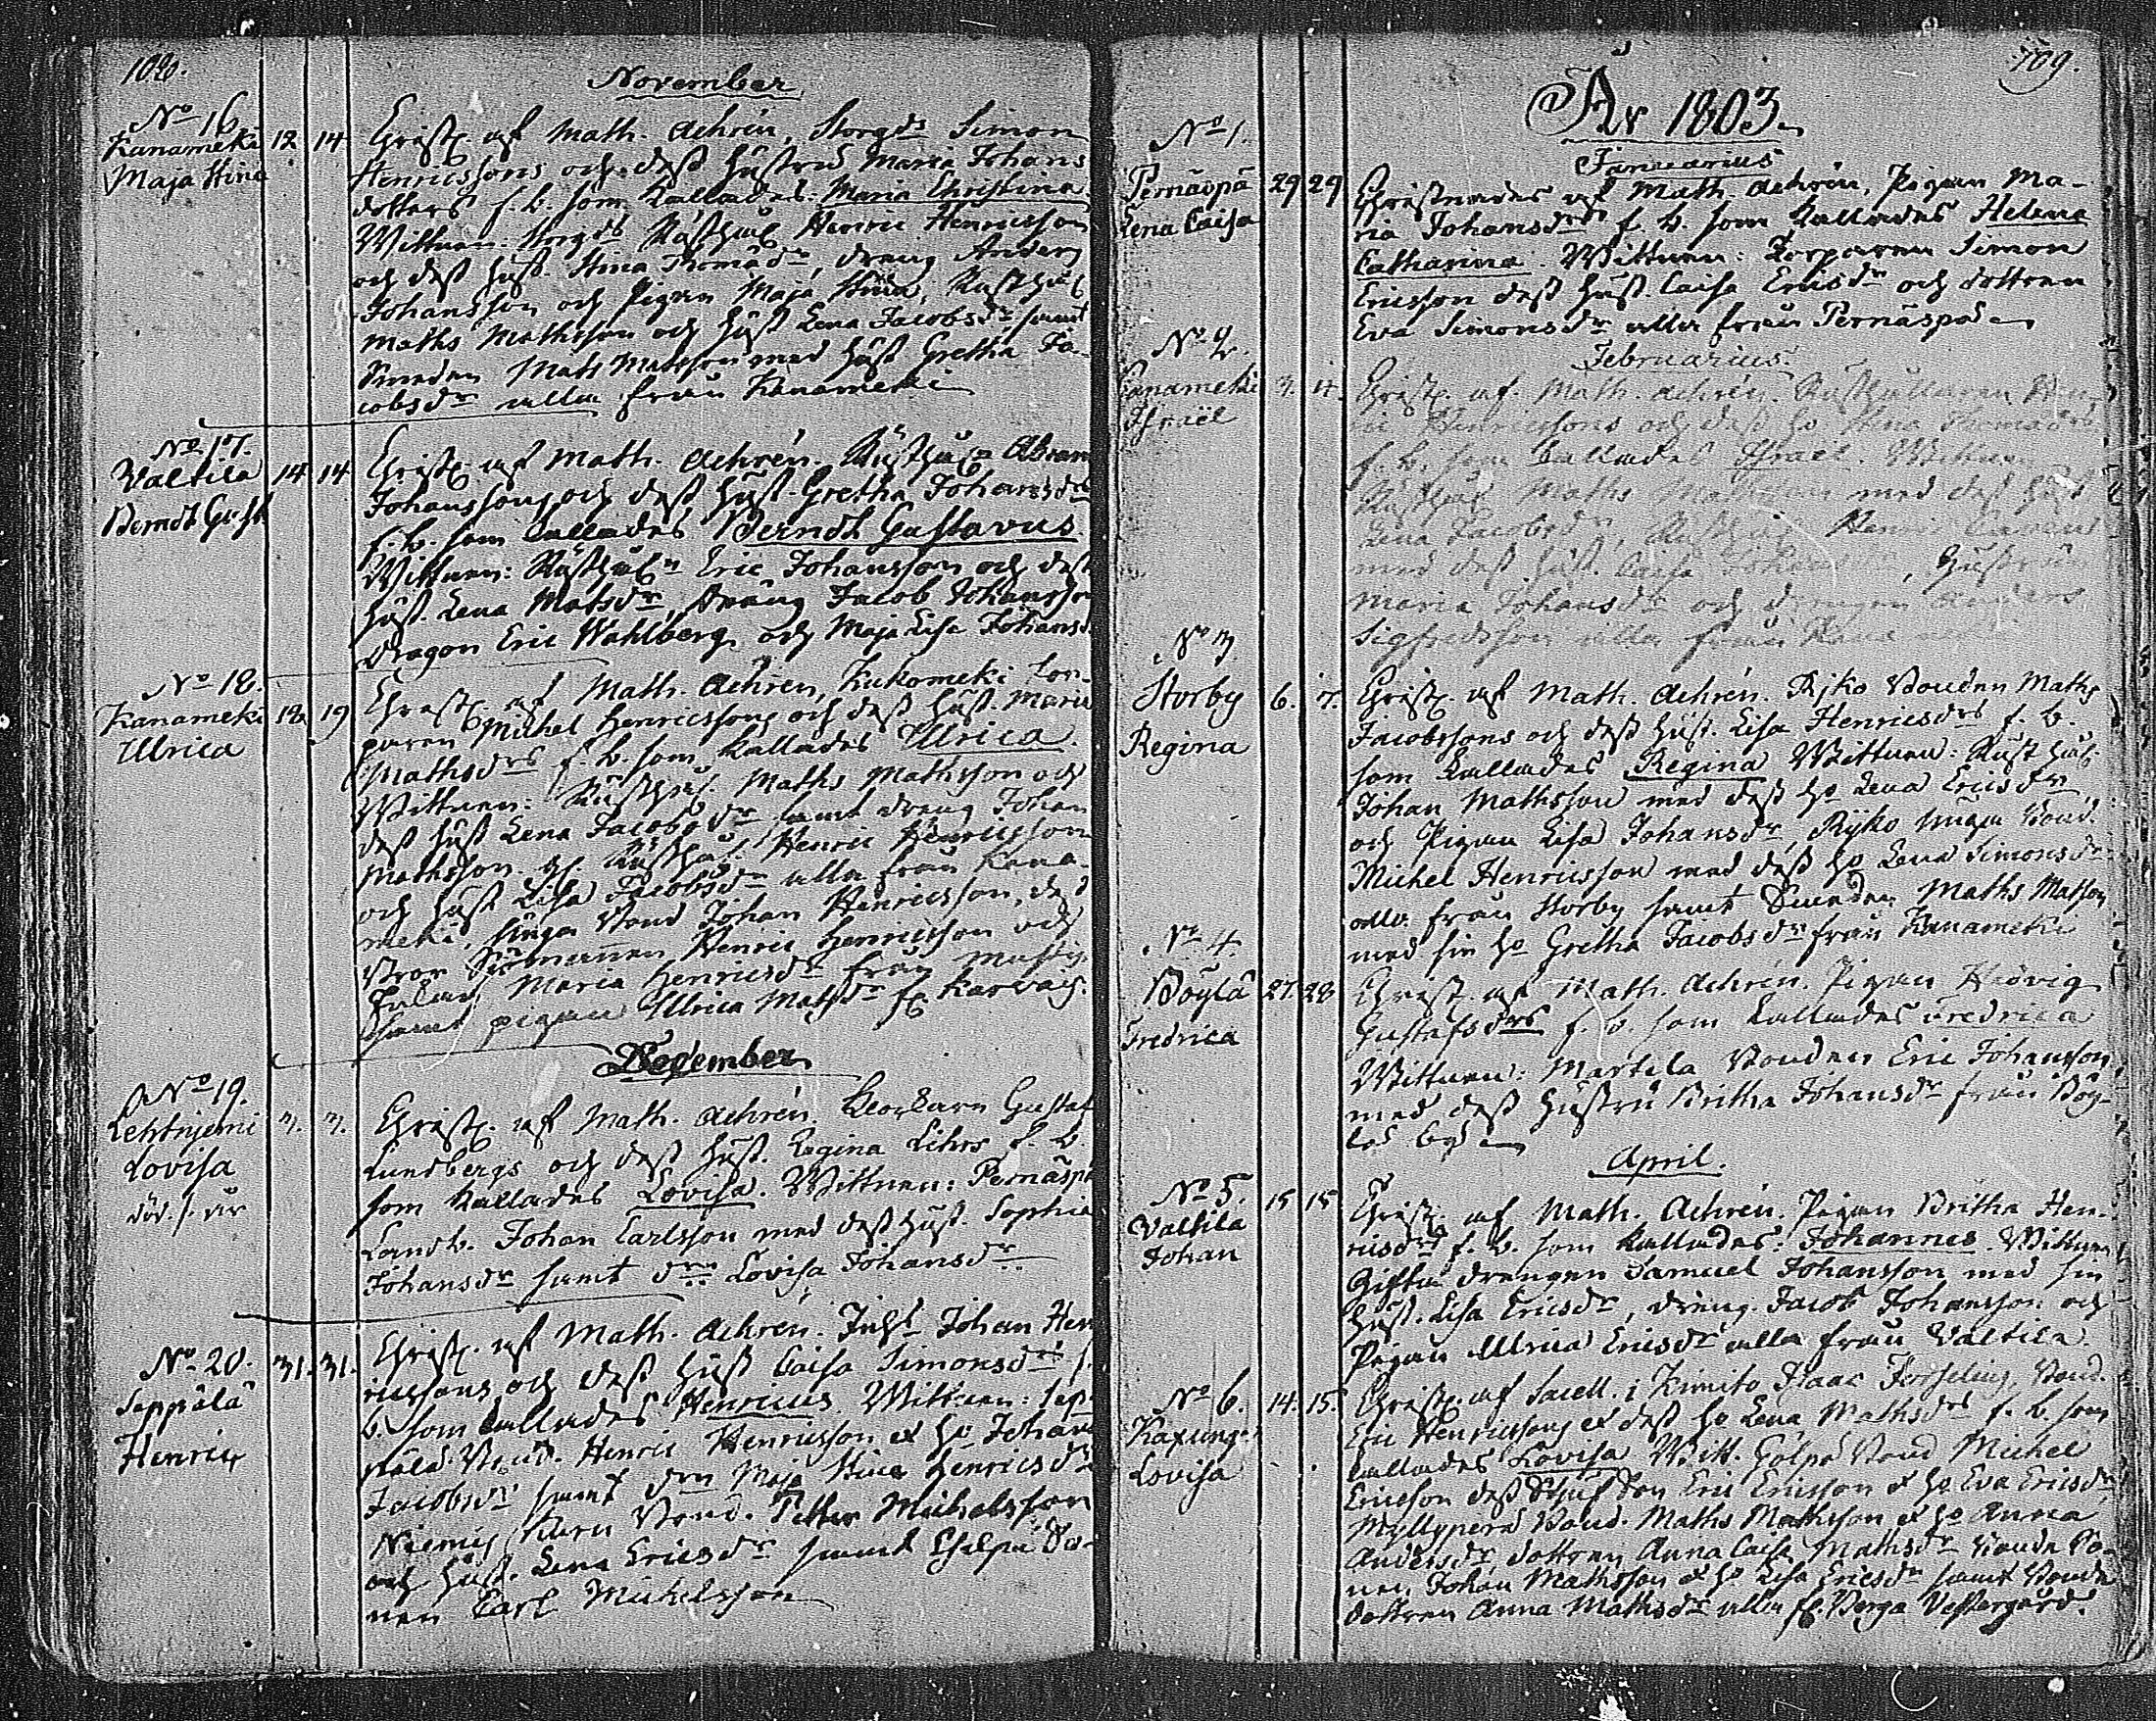 108.
November
No 16
Kanameki 12 14
Maja Stina
Christ. af Math. Achrén, Torgds Simon
Henricssons och dess hustru Maria Johans
dotters f. b. som kallades: Maria Christina
Wittnen: Rusthål Henric Henricsson
och dess hust. Stina Thomædr, dräng Anders
Johansson och Pigan Maja Stina, Rusthål
Maths Mathsson och hust Lena Jacobsdr samt
Smeden Mats Matsson med hust Gretha Ja-
cobsdr alla från Kanameki
No 17.
Valtila 14 14
Berndt Gust.
Christ. af Math. Achrén. Rusthål Abram
Johanssons och dess hust. Gretha Johansdrs
f. b. som kallades Berndt Gustavus
Wittnen: Rusthåln Eric Johansson och dess
hust. Lena Matsdr, dräng Jacob Johansson
dragon Eric Wahlberg och Maja Lisa Johansd.
No 18.
Kanameki 18 19
Ulrica
Christ. af Math. Achrén, Kukomeki Tor-
paren Michel Henricssons och dess hust. Maria
Mathsdrs f. b. som kallades Ulrica.
Wittnen: Rusthål. Maths Mathsson och
dess hust Lena Jacobsdr samt dräng Johan
Mathsson. Rusthål. Henric Henricsson
och hust Lisa Jacobsdr alla från Kana-
meki, unga Bond Johan Henricsson, dess
bror Henric Henricsson och
Maria Henricsdr från
samt pigan Ulrica Matsdr fr. Karvais.
December
No 19.
Lehtnjemi 3. 3.
Lovisa
död. 1. år
Christ. af Math. Achrén. Klockarn Gustaf
Lundbergs och dess hust. Regina Lihrs f. b.
som kallades Lovisa. Wittnen: Pernäspä
Landb. Johan Carlsson med dess hust. Sophia
Johansdr samt drn Lovisa Johansdr
No 20. 31. 31.
Seppälä
Henric
Christ. af Math. Achrén. Inhs Johan Hen
ricssons och dess hust Caisa Simonsdrs f.
b. som kallades Henricus Wittnen: Sep-
pälä Bond. Henric Henricsson et ho Johan
Jacobsdr samt drn Maja Stina Henricsdr
Niemis Bond. Petter Michelsson
och hust. Lena Ericsdr samt Bo-
nen Carl Michelsson
109.
År 1803
Januarius
No 1.
Pernäspä 29 29
Lena Caisa
Christnades af Math Achrén, Pigan Ma-
ria Johansdrs f. b. som kallades Helena
Catharina. Wittnen: Torparen Simon
Ericsson dess hust. Caisa Ericsdr och dottren
Eva Simonsdr alla från Pernäspä
Februarius
No 2.
Kanameki 3. 4.
Israël
Christ. af Math. Achrén. Rusthållaren Hen-
ric Henricssons och dess ho Stina Thomædrs
f. b. som kallades Israel. Wittnen
Rusthål Maths Mathsson med dess hust
Lena Jacobsdr, Rusthål Henric
med dess hust. Caisa Johansdr, hustrun
Maria Johansdr och drengen Anders
Sigfredsson alla från Kana
No 3
Storby 6. 7.
Regina
Christ. af Math. Achrén. Rjko Bonden Maths
Jacobssons och dess hust. Lisa Henricsdrs f. b.
som kallades Regina Wittnen: Rusthål
Johan Mathsson med dess ho Lena Ericsdr
och Pigan Lisa Johansdr, Rjko unga Bond.
Michel Henricsson med dess ho Lena Simonsdr
alla från Storby samt Smeden Maths Matsson
med sin ho Gretha Jacobsdr från Kanameki
No 4.
Böylä 27. 28
Fredrica
Christ. af Math. Achrén. Pigan Hedvig
Gustafsdrs f. b. som kallades Fredrica
Wittnen: Martila Bonden Eric Johansson
med dess hustru Britha Johansdr från Böy-
lä by
April.
No 5. 15 15
Valtila
Johan
Christ. af Math. Achrén. Pigan Britha Hen-
ricsdrs f. b. som kallades: Johannes. Wittnen
Giftu drengen Samuel Johansson med sin
hust. Lisa Ericsdr, dräng. Jacob Johansson och
Pigan Ulrica Ericsdr alla från Valtila.
No 6. 14. 15.
Lovisa
Christ. af Sacell. i Kimito Isaac Bond.
Eric Henricssons et dess ho Lena Mathsdrs f. b. som
kallades Lovisa Witt. Gölpö Bond Michel
Ericsson dess Eric Ericsson et ho Eva Ericsdr
Myllyperä Bond. Maths Mathsson et ho Anna
Andersdr dottren Anna Caisa Mathsdr Bonde So-
nen Johan Mathsson et ho Lisa Ericsdr samt Bonde
dottren Anna Mathsdr alla fr. Berga Vestergård.